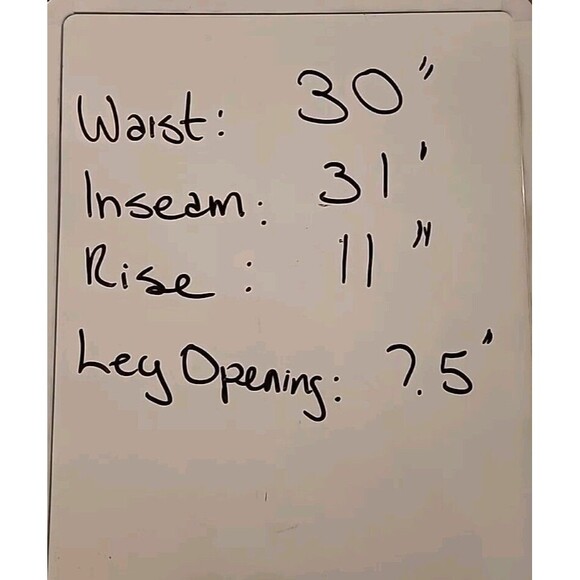 Waist: 30"
Inseam: 31'
Rise: 11"
Leg Opening: 7.5"